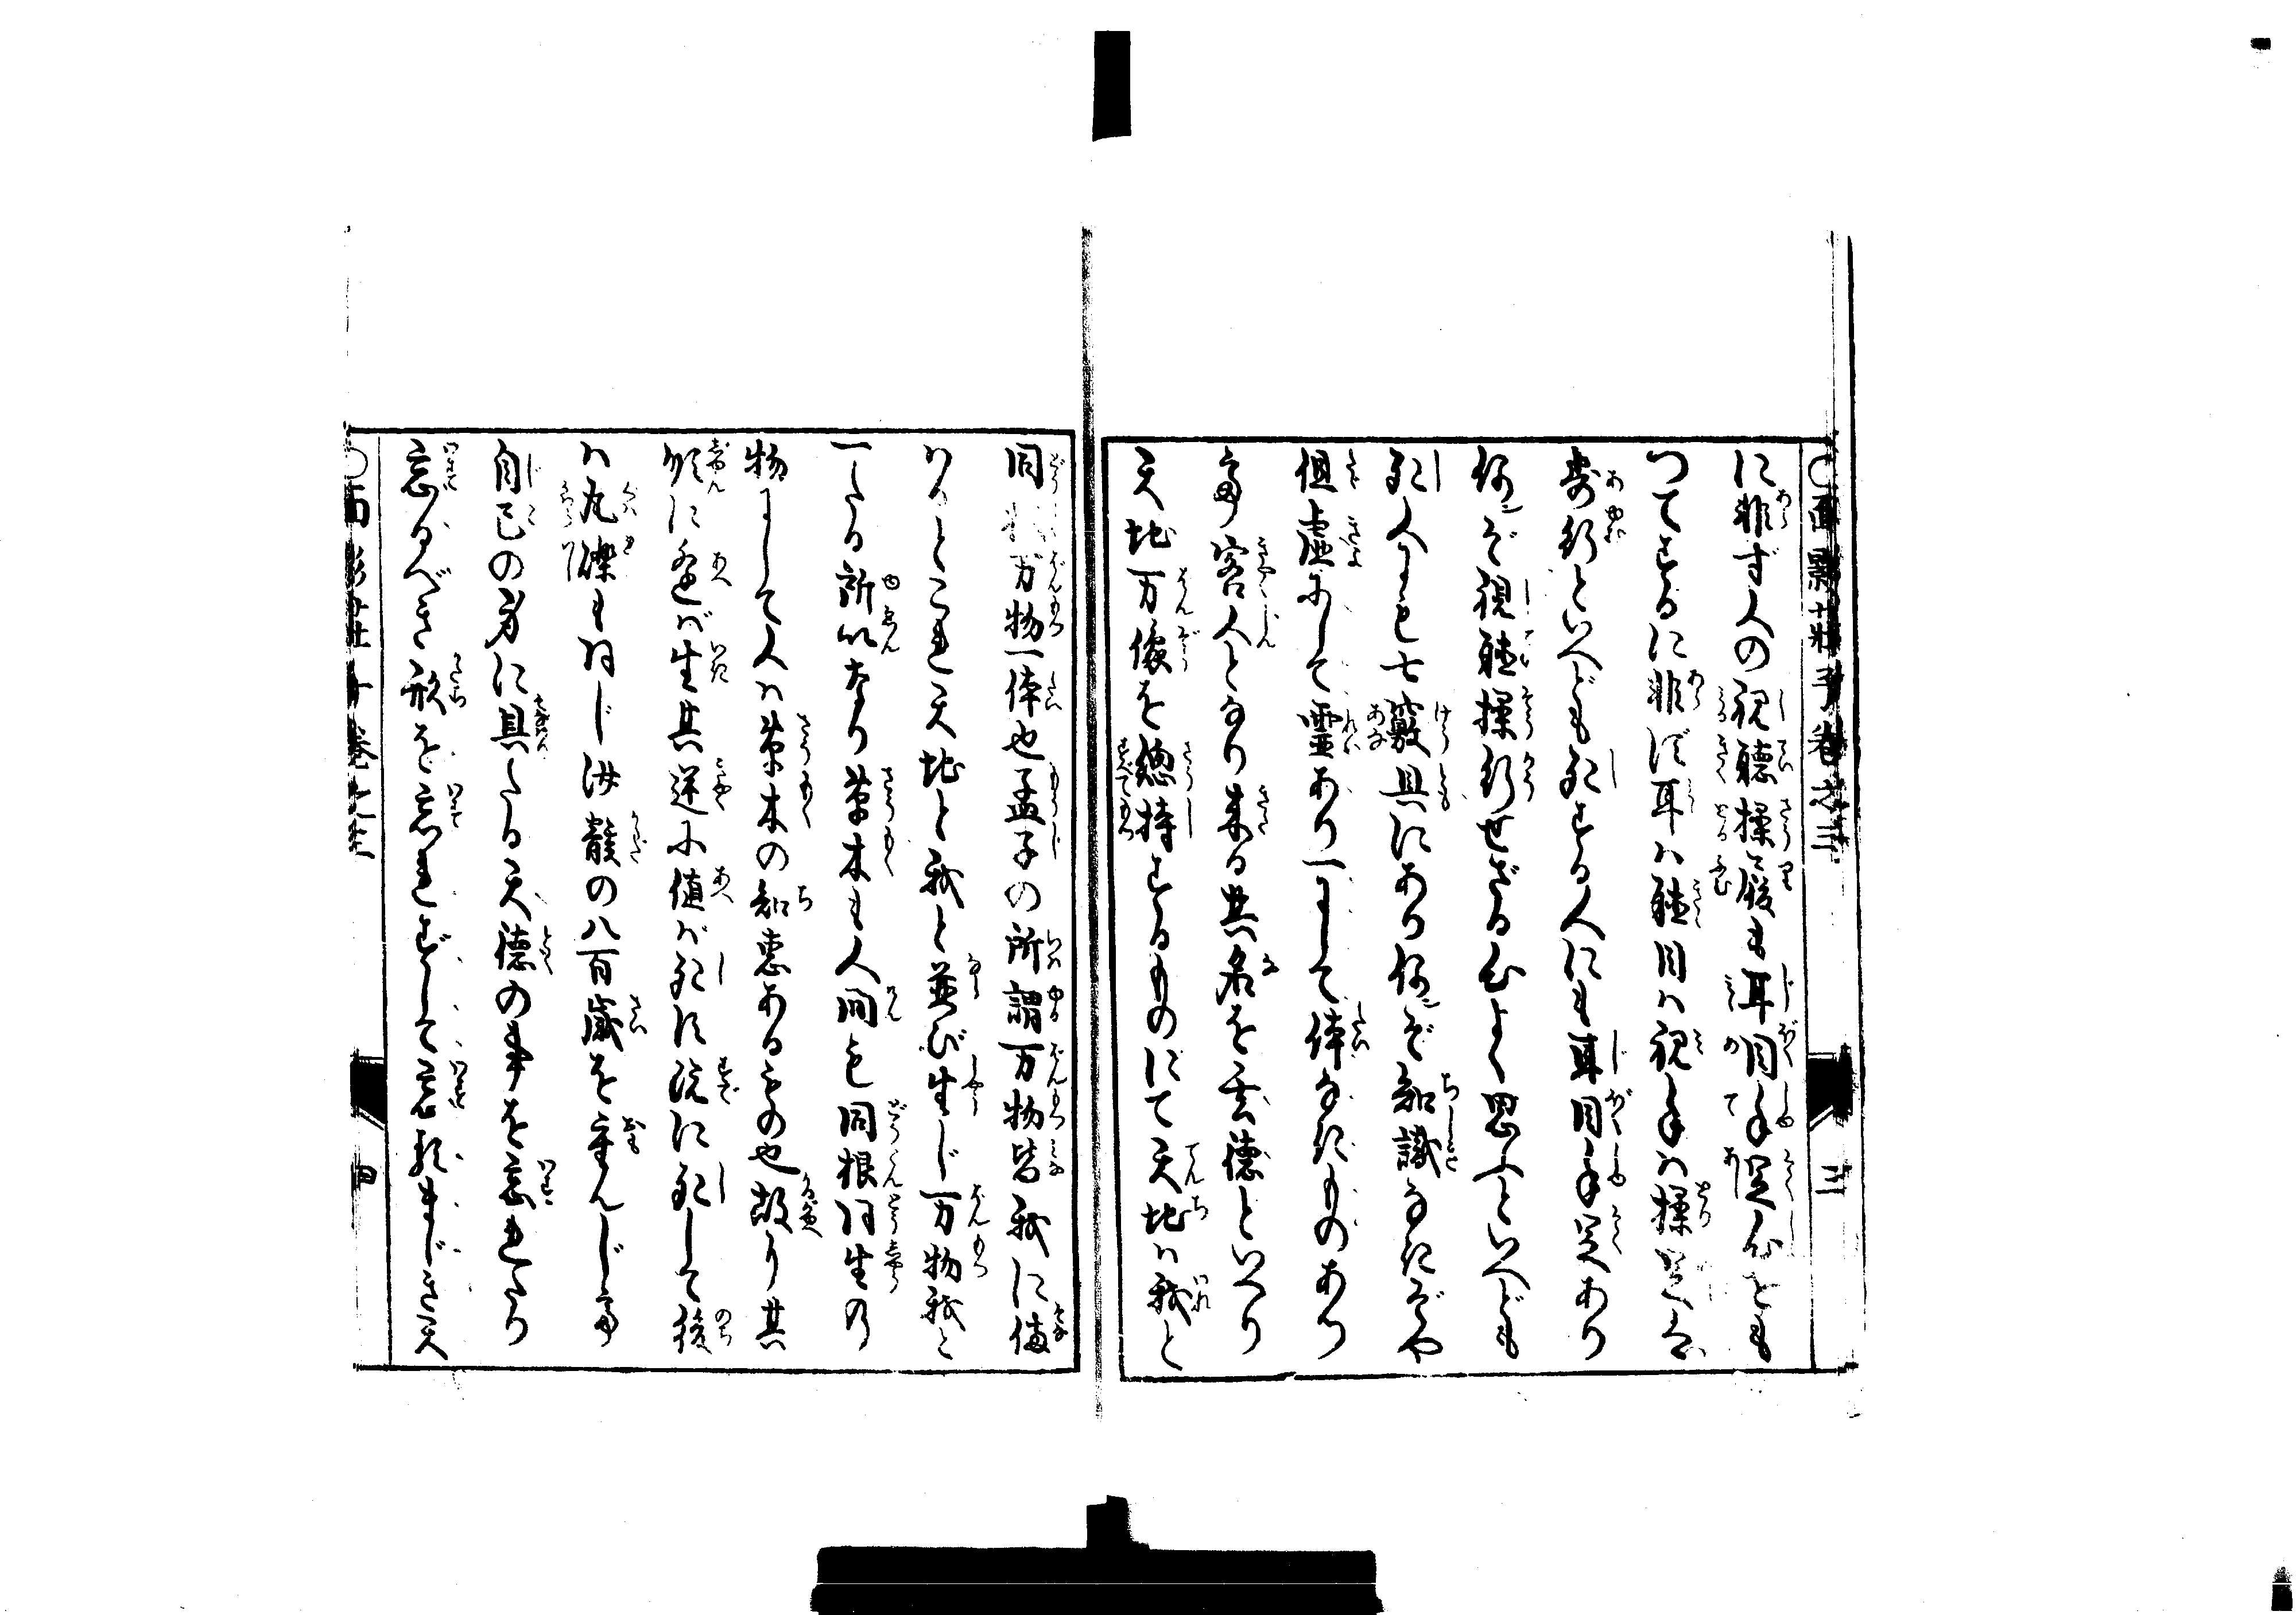 面影荘子巻之三 三
に非ず人の視聴操履も耳目手足がをも
つてするに非ず耳は聴目は視手は操足は
歩行といへども死する人にも耳目手足あり
何ぞ視聴操行せざる心よく思ふといへども
死人にも七竅具にあり何ぞ知識なきぞや
但虚にして霊あり一にして体なきものあつ
て客人となり来る其名を玄徳といへり
天地万像を総持するものにて天地は我と
同 万物一体也孟子の所謂万物皆我に備
はるとこれ天地と我と並び生じ万物我と
一たる所以なり草木も人間も同根同生の
物にして人は草木の知恵あるもの也故り其
順に逢ば生其逆に値ば死す既に死して後
は瓦礫も同じ汝骸の八百歳を重んじて
自己の身に具たる天徳の事を忘れたり
忘るべき形を忘れずして忘るまじき天
面影荘子巻之三 四